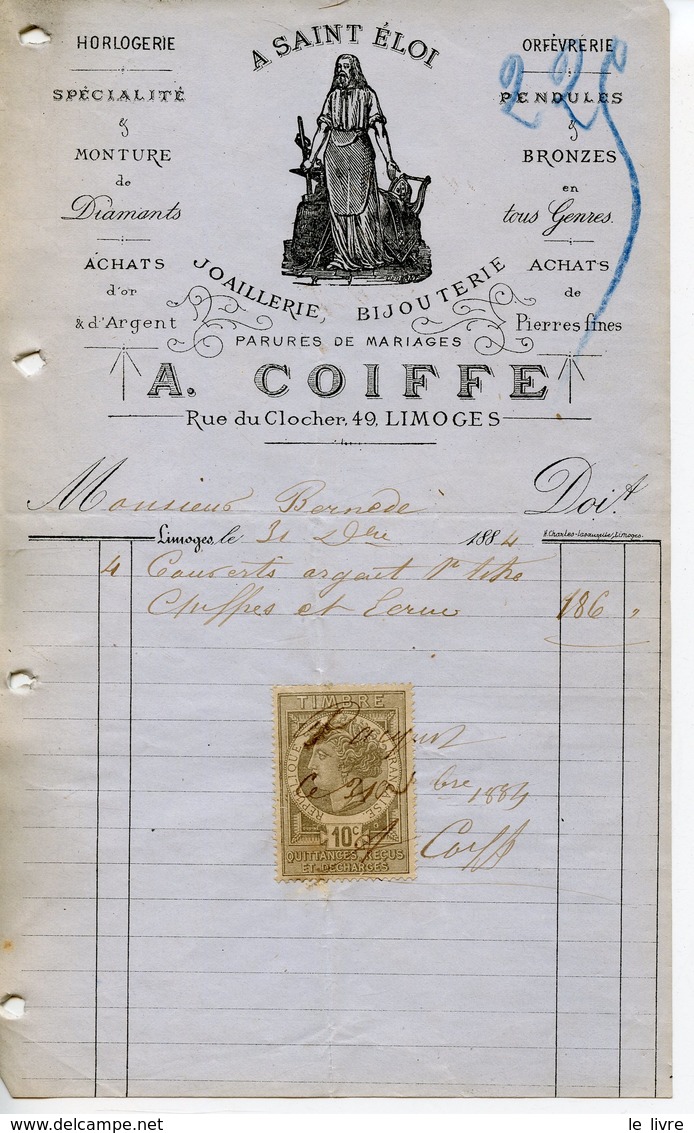 A SAINT ÉLOI
HORLOGERIE
SPÉCIALITÉ
&
MONTURE
de
Diamants
ACHATS
d'or
& d'Argent
ORFÈVRERIE
PENDULES
&
BRONZES
en
tous Genres.
ACHATS
de
Pierres fines
22
JOAILLERIE, BIJOUTERIE
PARURES DE MARIAGES
A. COIFFE
Rue du Clocher, 49, LIMOGES
Monsieur Bernède Doit
Limoges, le 31 Xbre 1884
H. Charles-Lavauzelle, Limoges.
4 Couverts argent 1er titre
Chiffres et Ecrin 186 "
TIMBRE
RÉPUBLIQUE FRANÇAISE
10c
QUITTANCES, REÇUS
ET DÉCHARGES
Pour acquit
Ce 31 Xbre 1884
A. Coiffe
le livre